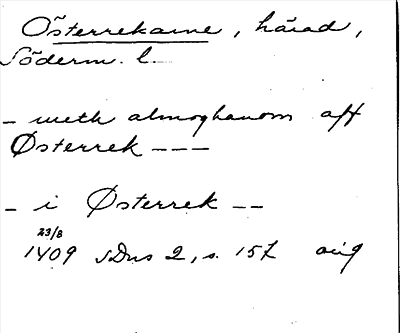 Österrekarne, härad,
Söderm. l.
- meth almoghanom aff
Østerrek ---
- i Østerrek --
23/8
1409 SDns 2, s. 157 orig